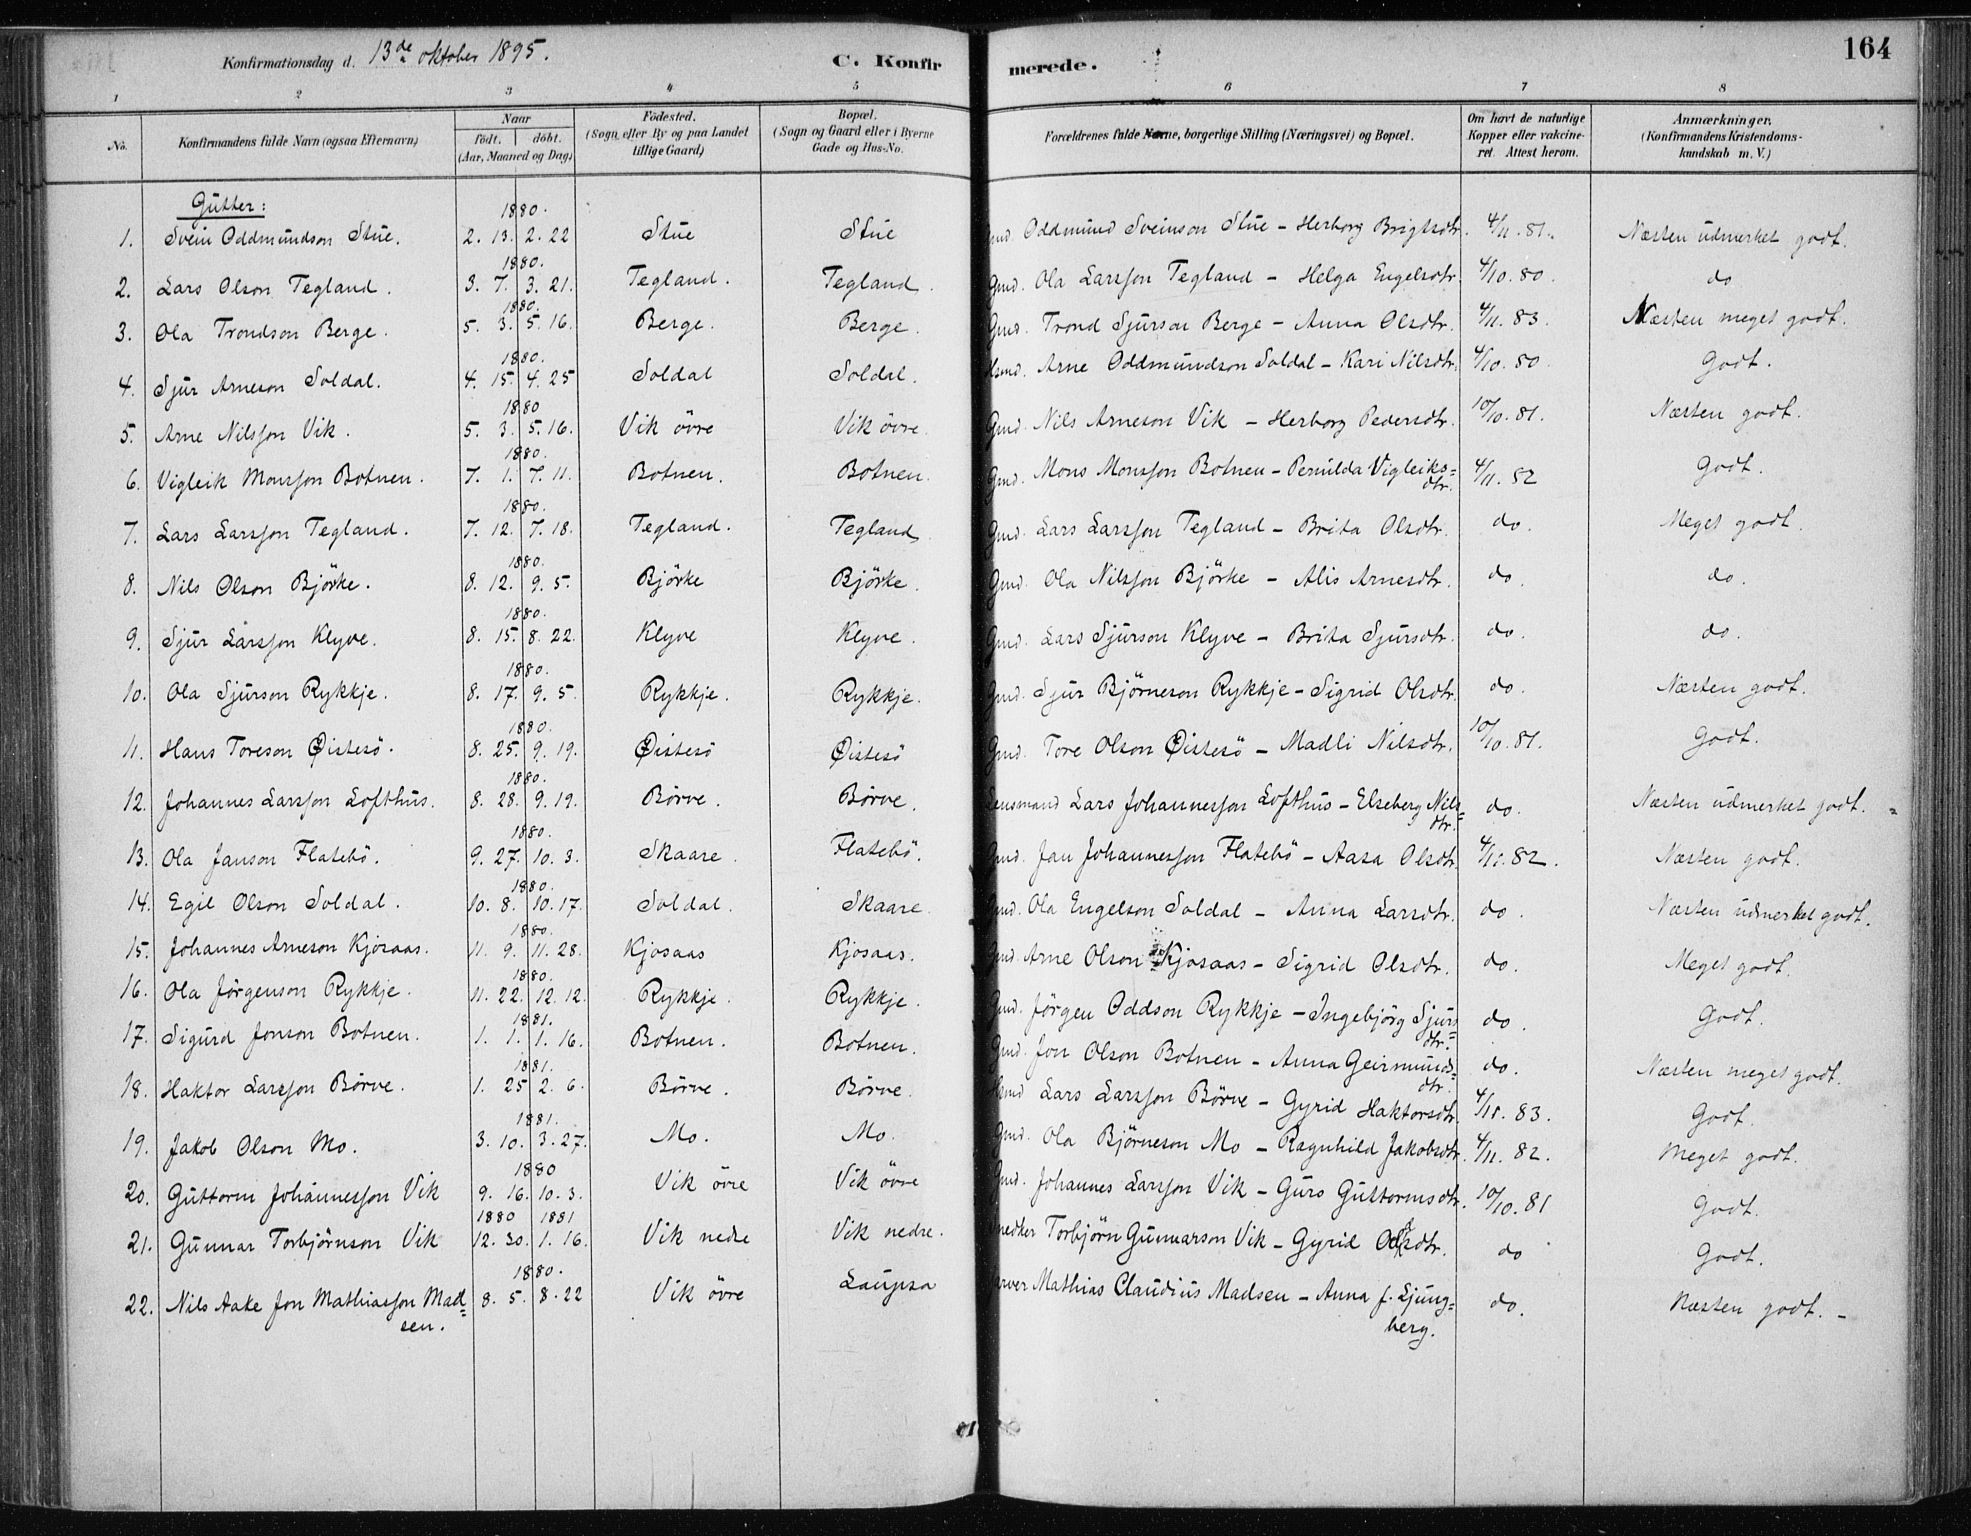 Konfirmationsdag d. 13de oktober 1895. C. Konfirmerede. 164
1 2 3 4 5 6 7 8
No. Konfirmandens fulde Navn (ogsaa Efternavn) Naar født. døbt. (Aar, Maaned og Dag) Fødested. (Sogn eller By og paa Landet tillige Gaard) Bopæl. (Sogn og Gaard eller i Byerne Gade og Hus-No. Forældrenes fulde Navne, borgerlige Stilling (Næringsvei) og Bopæl. Om havt de naturlige Kopper eller vakcineret. Attest herom. Anmærkninger. (Konfirmandens Kristendomskundskab m. V.)
Gutter:
1880.
1. Svein Oddmundson Stue. 2. 13. 2. 22 Stue Stue Gmd. Oddmund Sveinson Stue - Herborg Brigtsdtr. 4/11. 81. Næsten udmerket godt.
1880.
2. Lars Olson Tegland. 3. 7. 3. 21. Tegland. Tegland. Gmd. Ola Larsson Tegland - Helga Engelsdtr. 4/10. 80. do
1880.
3. Ola Trondson Berge. 5. 3. 5. 16. Berge. Berge. Gmd. Trond Sjurson Berge - Anna Olsdtr. 4/11. 83. Næsten meget godt.
1880.
4. Sjur Arneson Soldal. 4. 15. 4. 25 Soldal Soldal. Hsmd. Arne Oddmundson Soldal - Kari Nilsdtr. 4/10. 80. Godt.
1880
5. Arne Nilsson Vik. 5. 3. 5. 16. Vik övre Vik övre. Gmd. Nils Arneson Vik - Herborg Pedersdtr. 10/10. 81. Næsten godt.
1880.
6. Vigleik Monsson Botnen. 7. 1. 7. 11. Botnen. Botnen. Gmd. Mons Monsson Botnen - Pernilda Vigleiks= dtr. 4/11. 82 Godt.
1880.
7. Lars Larsson Tegland. 7. 12. 7. 18. Tegland. Tegland Gmd. Lars Larsson Tegland - Brita Olsdtr. do. Meget godt.
1880.
8. Nils Olson Björke. 8. 12. 9. 5. Björke Björke. Gmd. Ola Nilsson Björke - Alis Arnesdtr. do. do.
1880.
9. Sjur Larsson Klyve. 8. 15. 8. 22. Klyve Klyve. Gmd. Lars Sjurson Klyve - Brita Sjursdtr. do. do.
1880.
10. Ola Sjurson Rykkje. 8. 17. 9. 5. Rykkje. Rykkje. Gmd. Sjur Björneson Rykkje - Sigrid Olsdtr. do. Næsten godt.
1880.
11. Hans Toreson Øistesö. 8. 25. 9. 19. Øistesö Øistesö Gmd. Tore Olson Øistesö - Madli Nilsdtr. 10/10. 81. Godt.
1880.
12. Johannes Larsson Lofthus. 8. 28. 9. 19. Börve. Börve. Lensmand Lars Johannesson Lofthus - Elseberg Nils= dtr. do. Næsten udmerket godt.
1880.
13. Ola Janson Flatebö. 9. 27. 10. 3. Skaare. Flatebö. Gmd. Jan Johannesson Flatebö - Aasa Olsdtr. 4/10. 82. Næsten godt.
1880.
14. Egil Olson Soldal. 10. 8. 10. 17. Soldal. Skaare. Gmd. Ola Engelson Soldal - Anna Larsdtr. do. Næsten udmerket godt.
1880.
15. Johannes Arneson Kjosaas. 11. 9. 11. 28. Kjosaas Kjosaas. Gmd. Arne Olson Kjosaas - Sigrid Olsdtr. do. Meget godt.
1880.
16. Ola Jörgenson Rykkje. 11. 22. 12. 12. Rykkje. Rykkje. Gmd. Jörgen Oddson Rykkje - Ingebjörg Sjurs= dtr. do. Godt.
1881.
17. Sigurd Jonson Botnen. 1. 1. 1. 16. Botnen. Botnen. Gmd. Jon Olson Botnen - Anna Geirmunds= dtr. do. Næsten meget godt.
1881.
18. Haktor Larsson Börve. 1. 25 2. 6. Börve. Börve. Hsmd Lars Larsson Börve - Gyrid Haktorsdtr. 4/11. 83. Godt.
1881.
19. Jakob Olson Mo. 3. 10. 3. 27. Mo. Mo. Gmd. Ola Björneson Mo - Ragnhild Jakobsdtr. 4/11. 82. Meget godt.
1880
20. Guttorm Johannesson Vik 9. 16. 10. 3. Vik övre Vik övre Gmd. Johannes Larsson Vik - Guro Guttormsdtr. 10/10. 81 Godt.
1880 1881
21. Gunnar Torbjörnson Vik 12. 30. 1. 16. Vik nedre Vik nedre. Snedker Torbjörn Gunnarson Vik - Gyrid Olsdtr. do Godt.
1880.
22. Nils Aake Jon Mathiasson Mad= sen. 8. 5. 8. 22 Vik övre Laupsa Farver Mathias Claudius Madsen - Anna f. Ljung= berg. do. Næsten godt. -